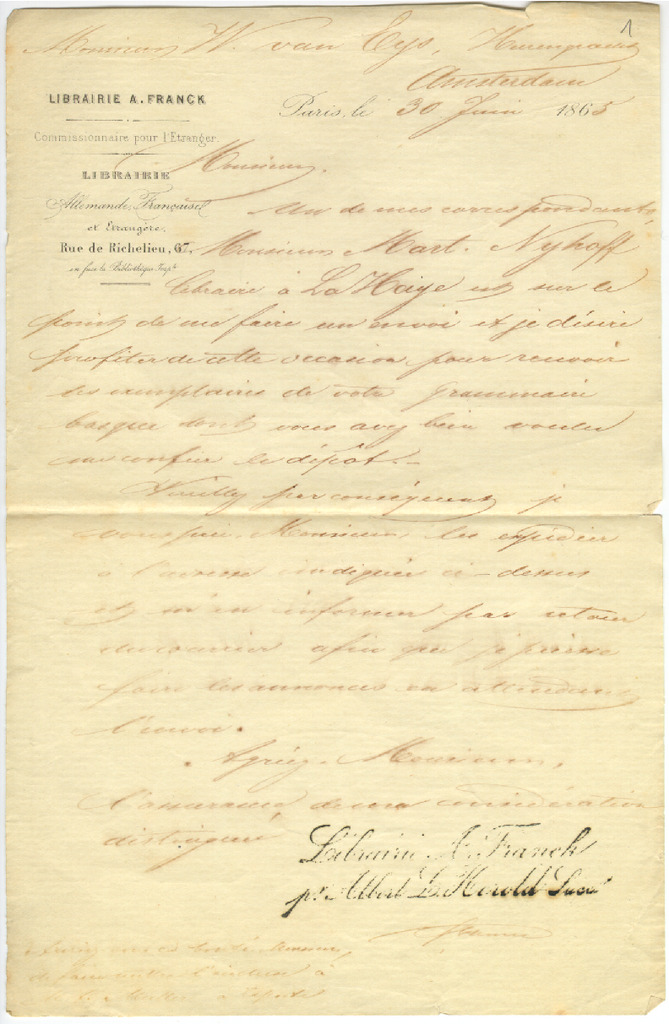 1
Monsieur W. van Eys, Heerengracht
Amsterdam
LIBRAIRIE A. FRANCK
Paris, le 30 Juin 1865
Commissionnaire pour l'Etranger.
LIBRAIRIE
Allemande, Française
et Etrangère,
Rue de Richelieu, 67.
en face la Bibliothèque Imple
Monsieur.
Un de mes correspondants,
Monsieur Mart. Nyhoff
libraire à La Haye est sur le
point de me faire un envoi et je désire
profiter de cette occasion pour recevoir
les exemplaires de votre grammaire
basque dont vous avez bien voulu
me confier le dépôt.
Veuillez par conséquent, je
vous prie, Monsieur, les expédier
à l'adresse indiquée ci-dessus
et m'en informer par retour
du courrier afin que je puisse
faire les annonces en attendant
l'envoi.
Agréez, Monsieur,
l'assurance de ma considération
distinguée
Librairie A. Franck
pr. Albert L. Herold Succr